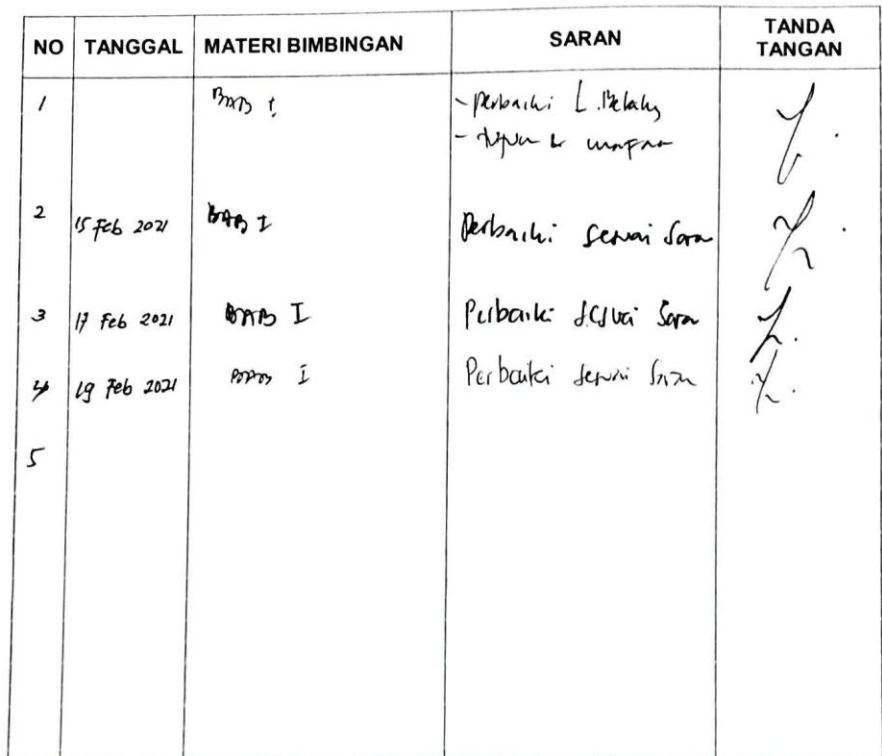 NO TANGGAL MATERI BIMBINGAN SARAN TANDA TANGAN
1 BAB I - Perbaiki L. Belakg
- tujuan &
2 15 Feb 2021 BAB I Perbaiki sesuai Saran
3 17 Feb 2021 BAB I Perbaiki sesuai Saran
4 19 Feb 2021 BAB I Perbaiki sesuai Saran
5